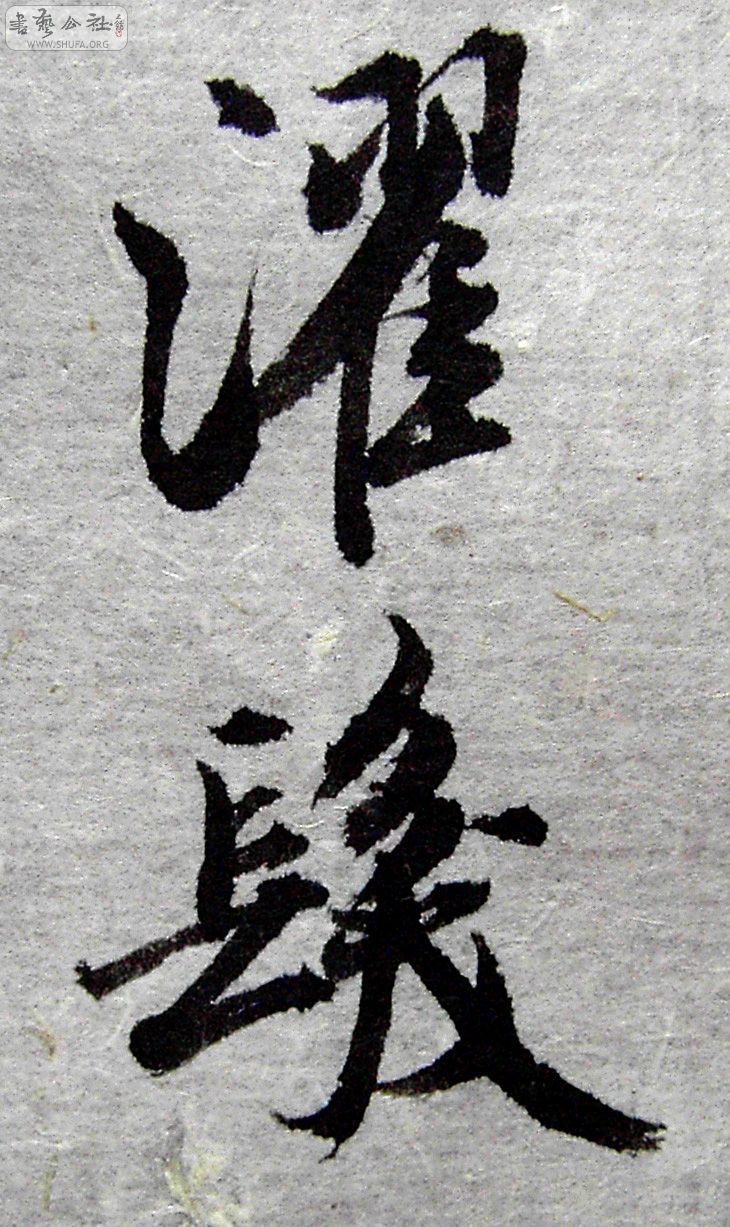 書藝公社
WWW.SHUFA.ORG
濯
髮